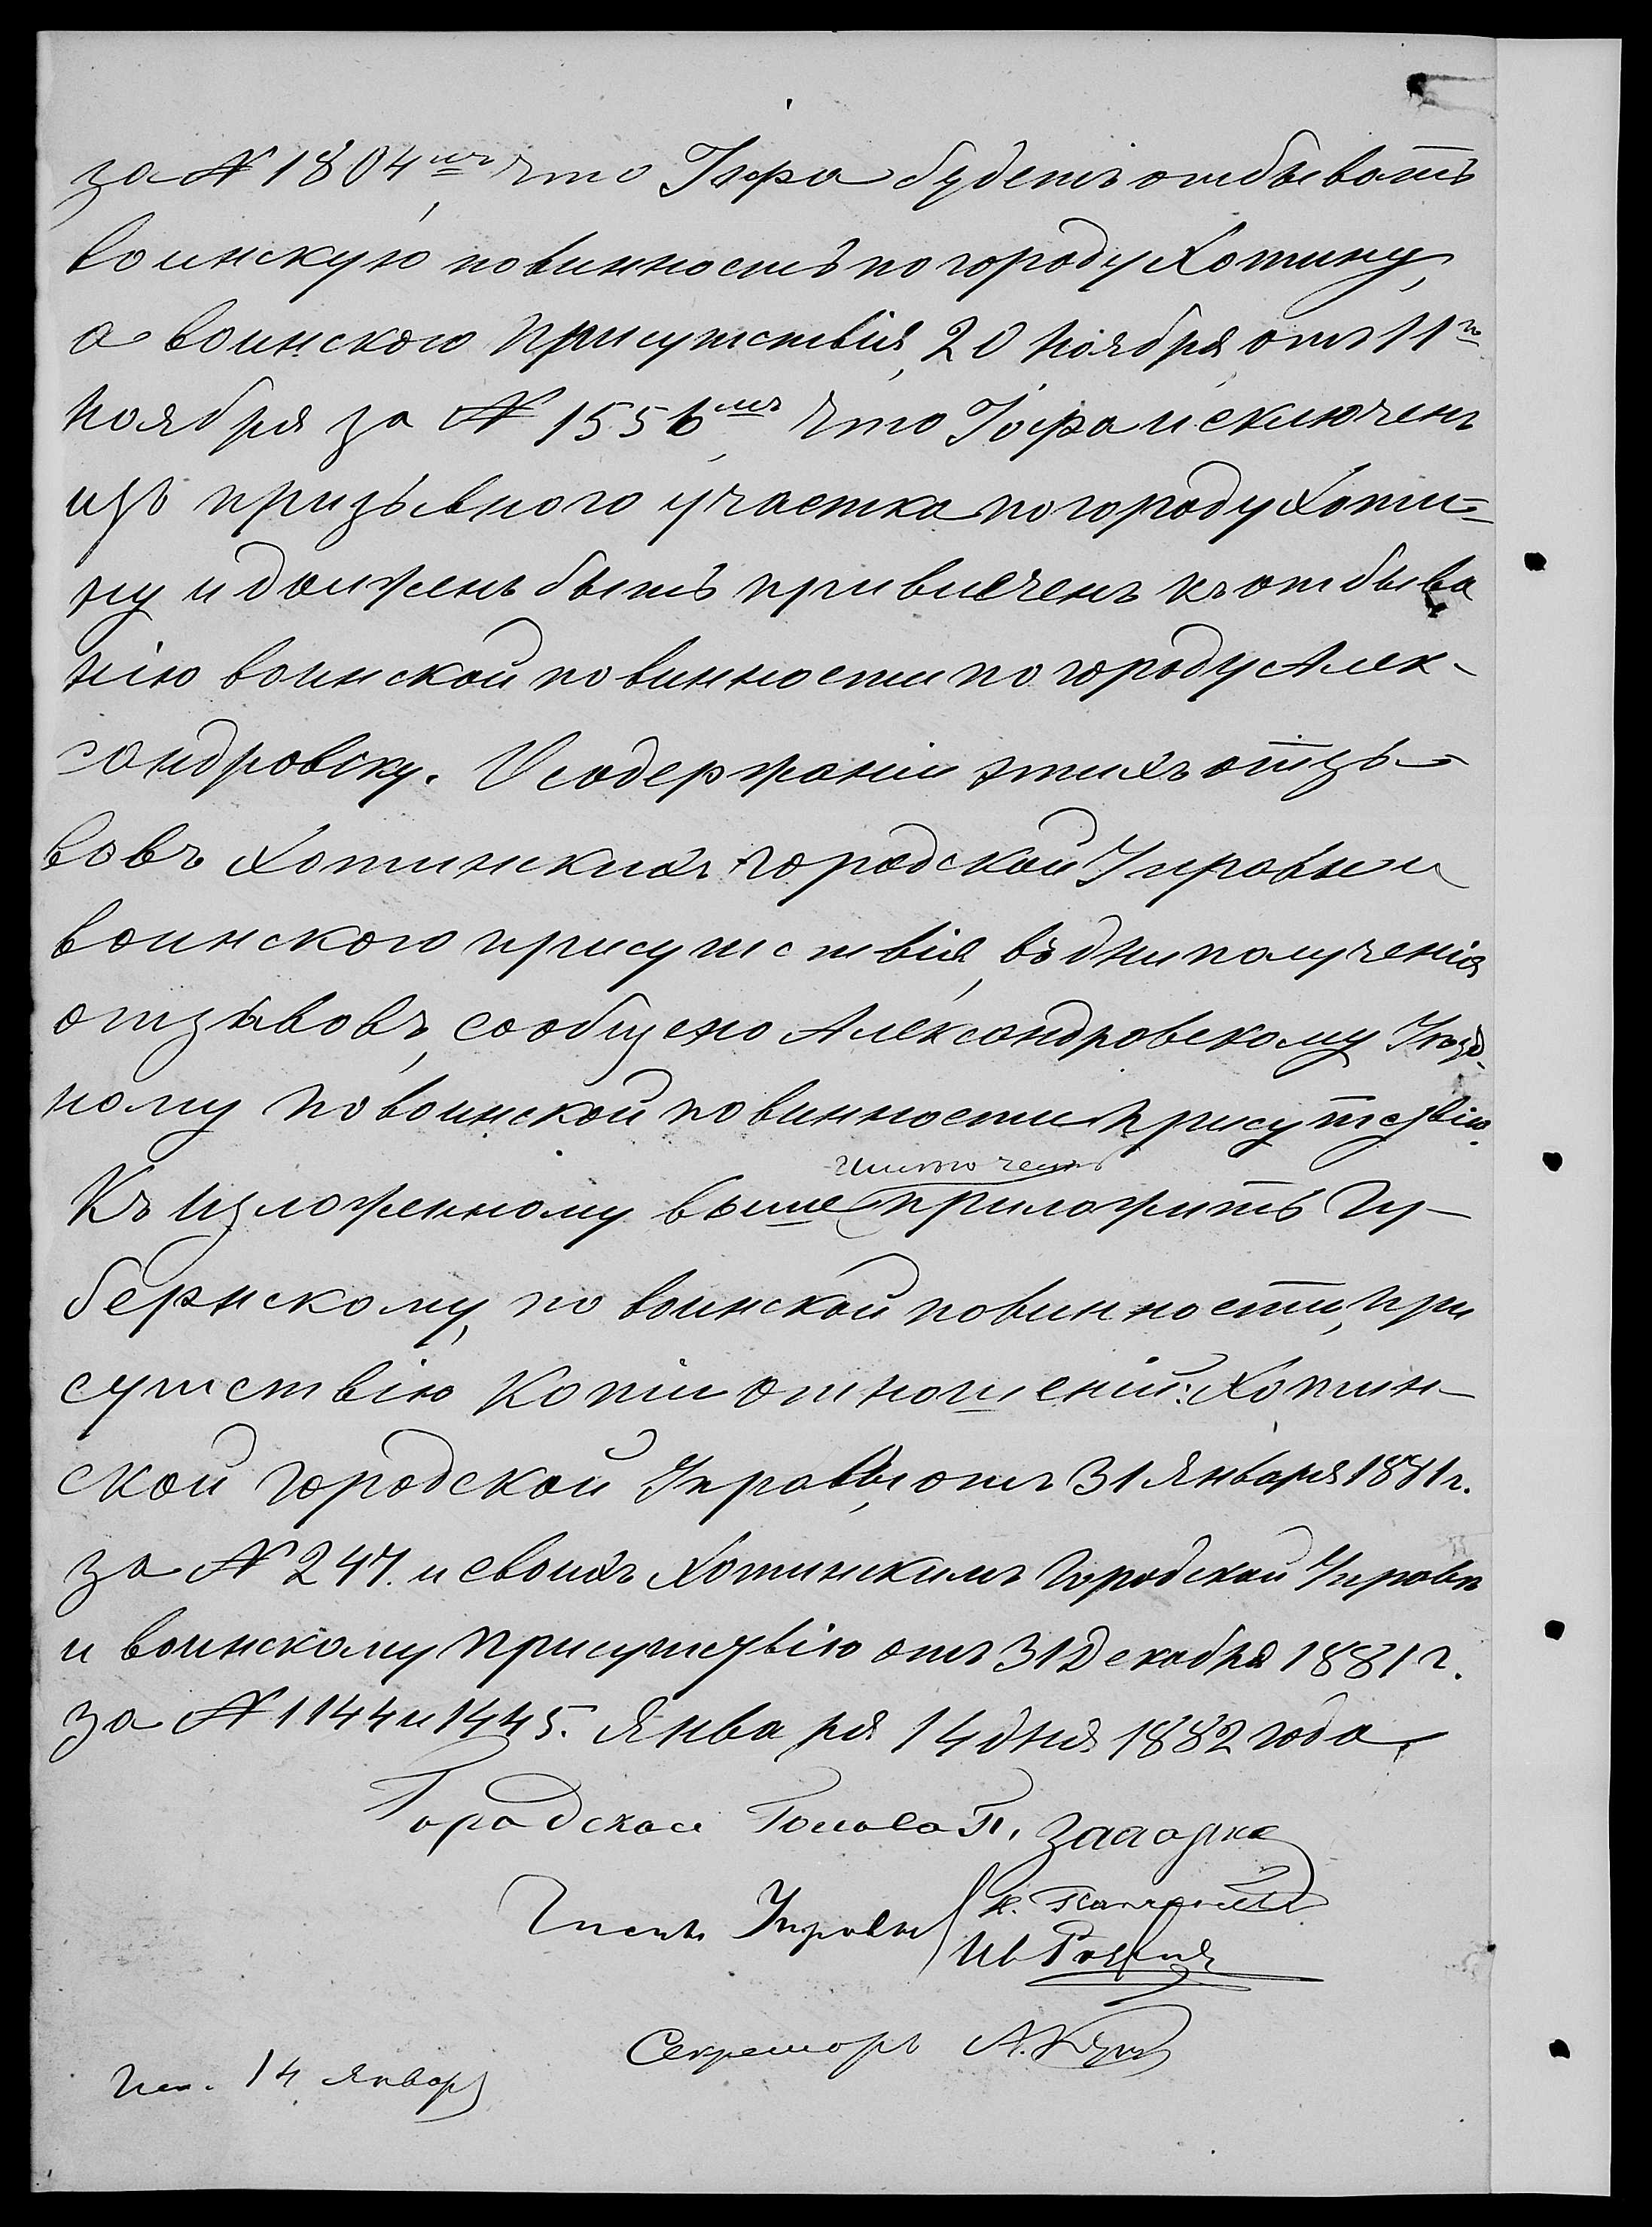 за № 1804мъ, что Гофра будетъ отбывать
воинскую повинность по городу Хотину,
а воинского присутствія, 20 Ноября, отъ 11го
Ноября за № 1556мъ, что Гофра исключенъ
изъ призывного участка по городу Хоти=
ну и долженъ быть привлеченъ къ отбыва
нію воинской повинности по городу Алек-
сандровску. О содержаніи этихъ отзы-
вовъ Хотинскихъ городской Управы и
воинского присутствія, въ дни полученія
отзывовъ, сообщено Александровскому Уѣзд.
ному по воинской повинности присутствію.
Къ изложенному выше приложить Гу-
бернскому, по воинской повинности, при
сутствію копіи отношеній: Хотин-
ской городской Управы, отъ 31 Января 1881 г.
за № 247. и своихъ Хотинскимъ городской Управѣ
и воинскому присутствію отъ 31 Декабря 1881 г.
за № 1144 и 1445. Января 14 дня 1882 года.
Городской Голова
Члены Управы
Секретарь А.
Исп. 14 Января